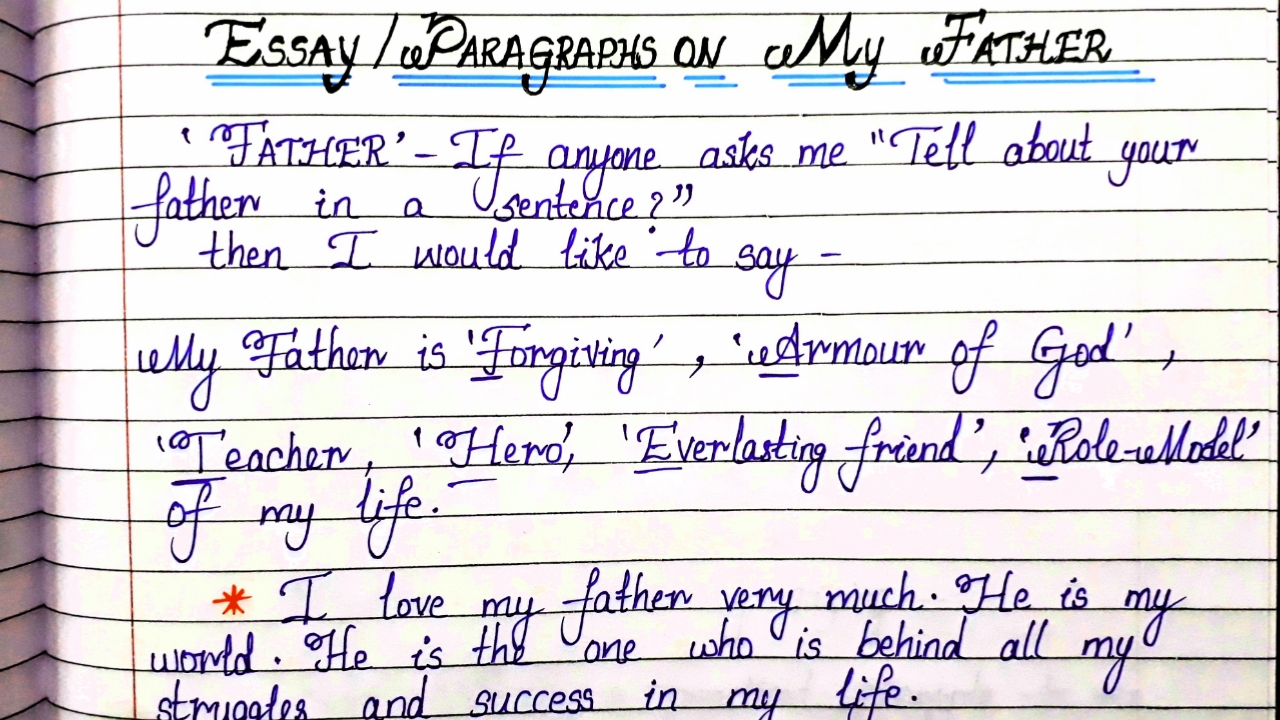 ESSAY / PARAGRAPHS ON MY FATHER
'FATHER' - If anyone asks me "Tell about your
father in a sentence?"
then I would like to say -
My Father is 'Forgiving', 'Armour of God',
'Teacher, 'Hero', 'Everlasting friend', 'Role-Model'
of my life.
* I love my father very much. He is my
world. He is the one who is behind all my
struggles and success in my life.